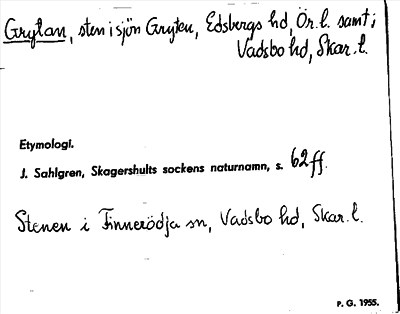 Grytan, sten i sjön Gryten, Edsbergs hd, Ör. l. samt i
Vadsbo hd, Skar. l.
Etymologi.
J. Sahlgren, Skagershults sockens naturnamn, s. 62 ff.
Stenen i Finnerödja sn, Vadsbo hd, Skar. l.
P. G. 1955.